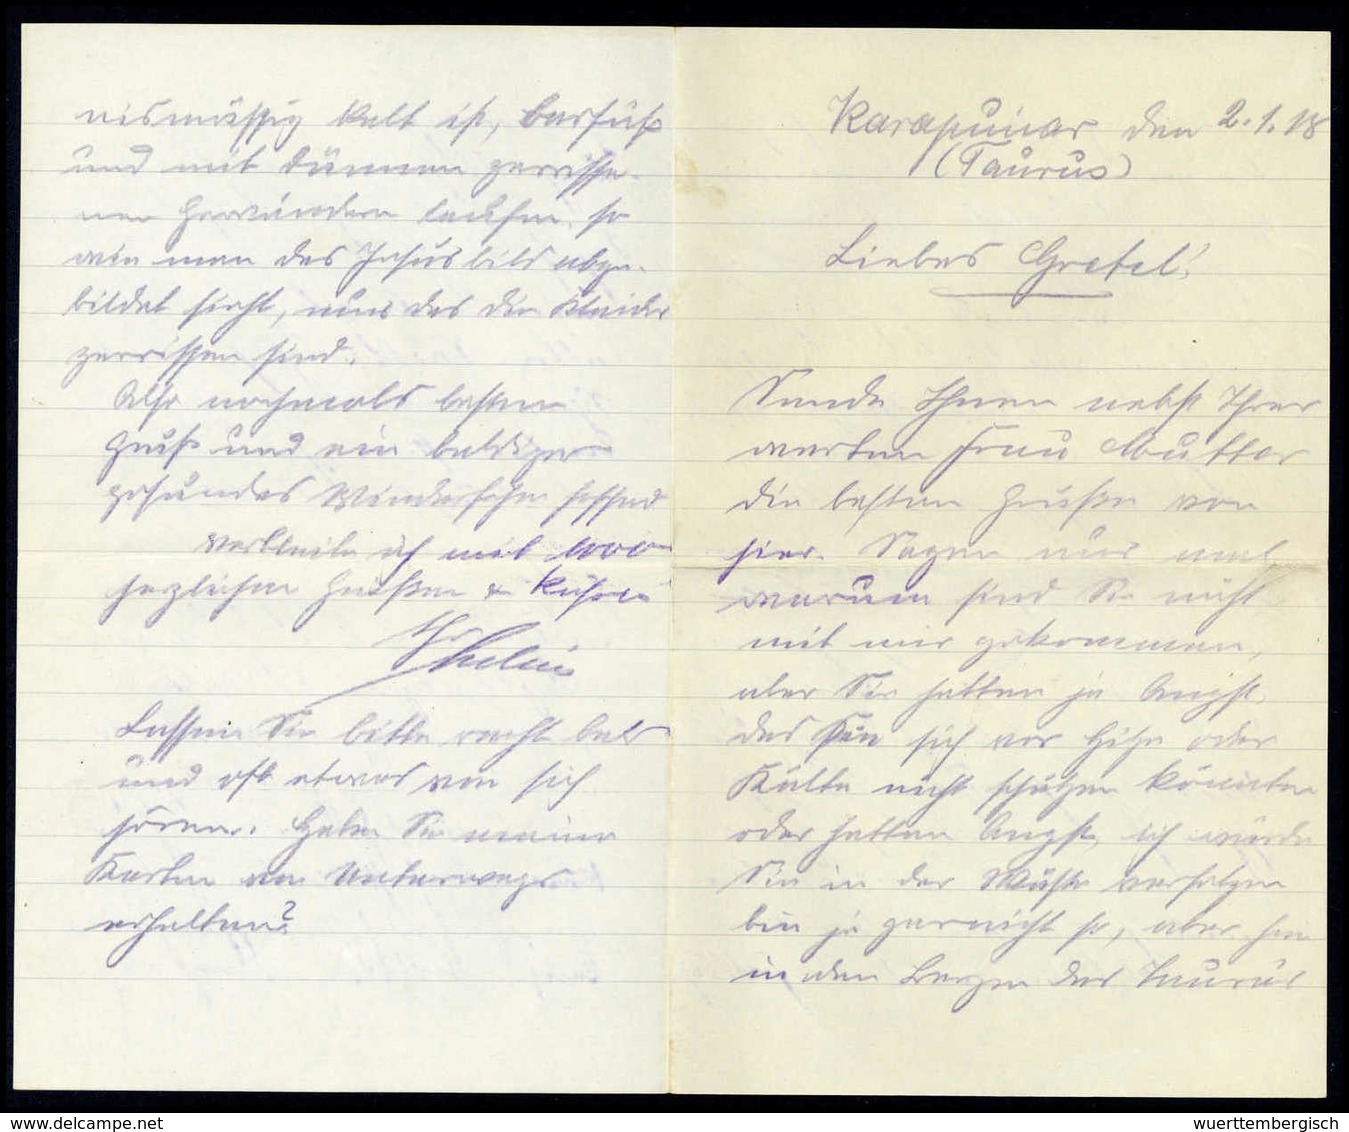 Karapunar den 2.1.18
(Taurus)
Liebes Gretel!
Sende Ihnen nebst Ihrer
werten Frau Mutter
die besten Grüße von
hier. Sagen nur mal
warum sind Sie nicht
mit mir gekommen,
aber Sie hatten ja Angst,
das Sie sich vor Hitze oder
Kälte nicht schützen könnten
oder hatten Angst, ich würde
Sie in der Wüste verfolgen
bin ja garnicht so, aber hier
in den Bergen des Taurus
nismässig kalt ist, barfuß
und mit dünnen zerrisse-
nen Gewändern laufen so
wie man das Jesusbild abge-
bildet sieht, nur das die Kleider
zerrissen sind.
Also nochmals besten
Gruß und ein baldiges
gesundes Wiedersehn hoffend
verbleibe ich mit 1000
herzlichen Grüßen & Küssen
Ihr
Lassen Sie bitte recht bald
und oft etwas von sich
hören. Haben Sie meine
Karten von Unterwegs
erhalten?
wuerttembergisch